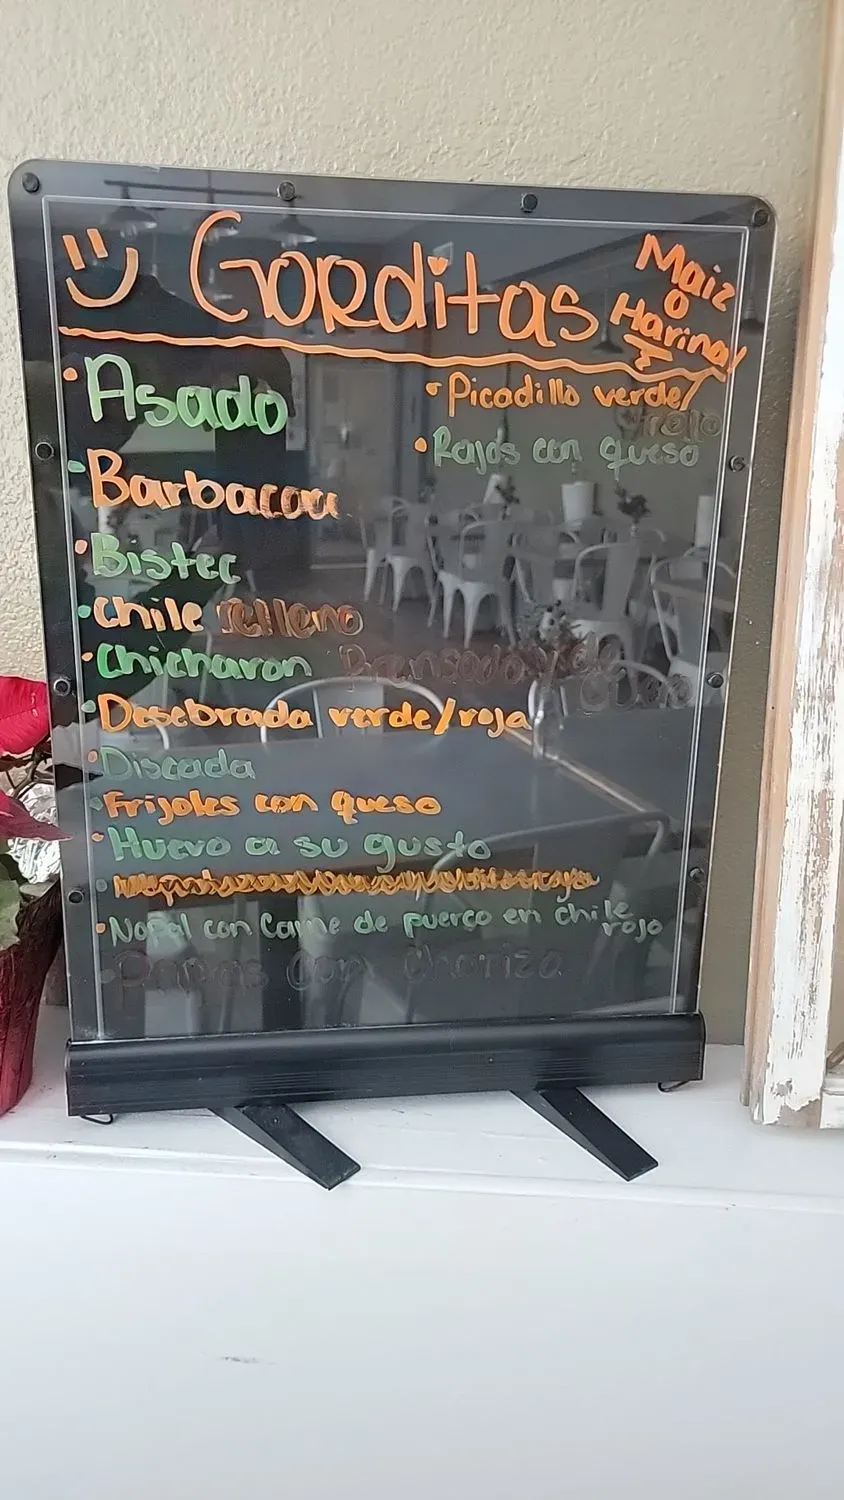 Gorditas
Maiz
o
Harina
• Asado
• Barbacoa
• Bistec
• Chile relleno
• Chicharon Prensado y de
Cuero
• Desebrada verde/roja
• Discada
• Frijoles con queso
• Huevo a su gusto
• Nopal con Carne de puerco en chile
rojo
• Papas con chorizo
• Picadillo verde/
rojo
• Rajas con queso